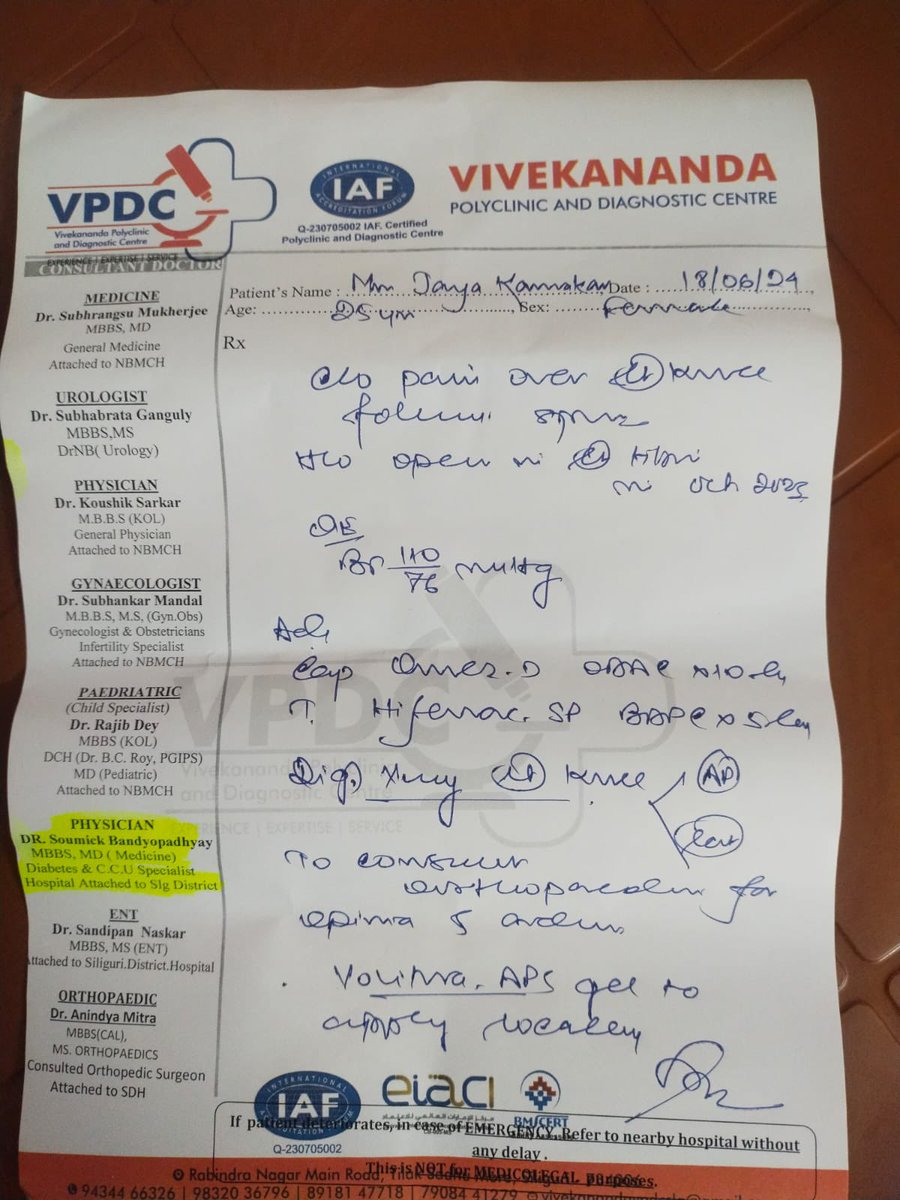 VPDC
Vivekananda Polyclinic
and Diagnostic Centre
EXPERIENCE | EXPERTISE | SERVICE
INTERNATIONAL
ACCREDITATION FORUM
IAF
Q-230705002 IAF. Certified
Polyclinic and Diagnostic Centre
VIVEKANANDA
POLYCLINIC AND DIAGNOSTIC CENTRE
CONSULTANT DOCTOR
MEDICINE
Dr. Subhrangsu Mukherjee
MBBS, MD
General Medicine
Attached to NBMCH
UROLOGIST
Dr. Subhabrata Ganguly
MBBS,MS
DrNB( Urology)
PHYSICIAN
Dr. Koushik Sarkar
M.B.B.S (KOL)
General Physician
Attached to NBMCH
GYNAECOLOGIST
Dr. Subhankar Mandal
M.B.B.S, M.S, (Gyn.Obs)
Gynecologist & Obstetricians
Infertility Specialist
Attached to NBMCH
PAEDRIATRIC
(Child Specialist)
Dr. Rajib Dey
MBBS (KOL)
DCH (Dr. B.C. Roy, PGIPS)
MD (Pediatric)
Attached to NBMCH
PHYSICIAN
DR. Soumick Bandyopadhyay
MBBS, MD ( Medicine)
Diabetes & C.C.U Specialist
Hospital Attached to Slg District
ENT
Dr. Sandipan Naskar
MBBS, MS (ENT)
Attached to Siliguri.District.Hospital
ORTHOPAEDIC
Dr. Anindya Mitra
MBBS(CAL),
MS. ORTHOPAEDICS
Consulted Orthopedic Surgeon
Attached to SDH
Patient's Name : Date : 18/06/24
Age: 25 yrs Sex: Female
Rx
C/o pain over Lt knee
H/o open Lt
in Oct 2023
O/E
BP 110/76 mmHg
Adv
Cap Omez.D x10
T. Hifenac. SP x 5
Xray Lt knee
AP
Lat
To consult
orthopaedic for
opinion & 
. Volitra. APS gel to
apply locally
VPDC
Vivekananda Polyclinic
and Diagnostic Centre
EXPERIENCE | EXPERTISE | SERVICE
INTERNATIONAL
IAF
Q-230705002
eiaci
BMJCERT
If patient deteriorates, in case of EMERGENCY, Refer to nearby hospital without
any delay .
This is NOT for MEDICOLEGAL purposes.
Rabindra Nagar Main Road,
94344 66326 | 98320 36796 | 89181 47718 | 79084 41279